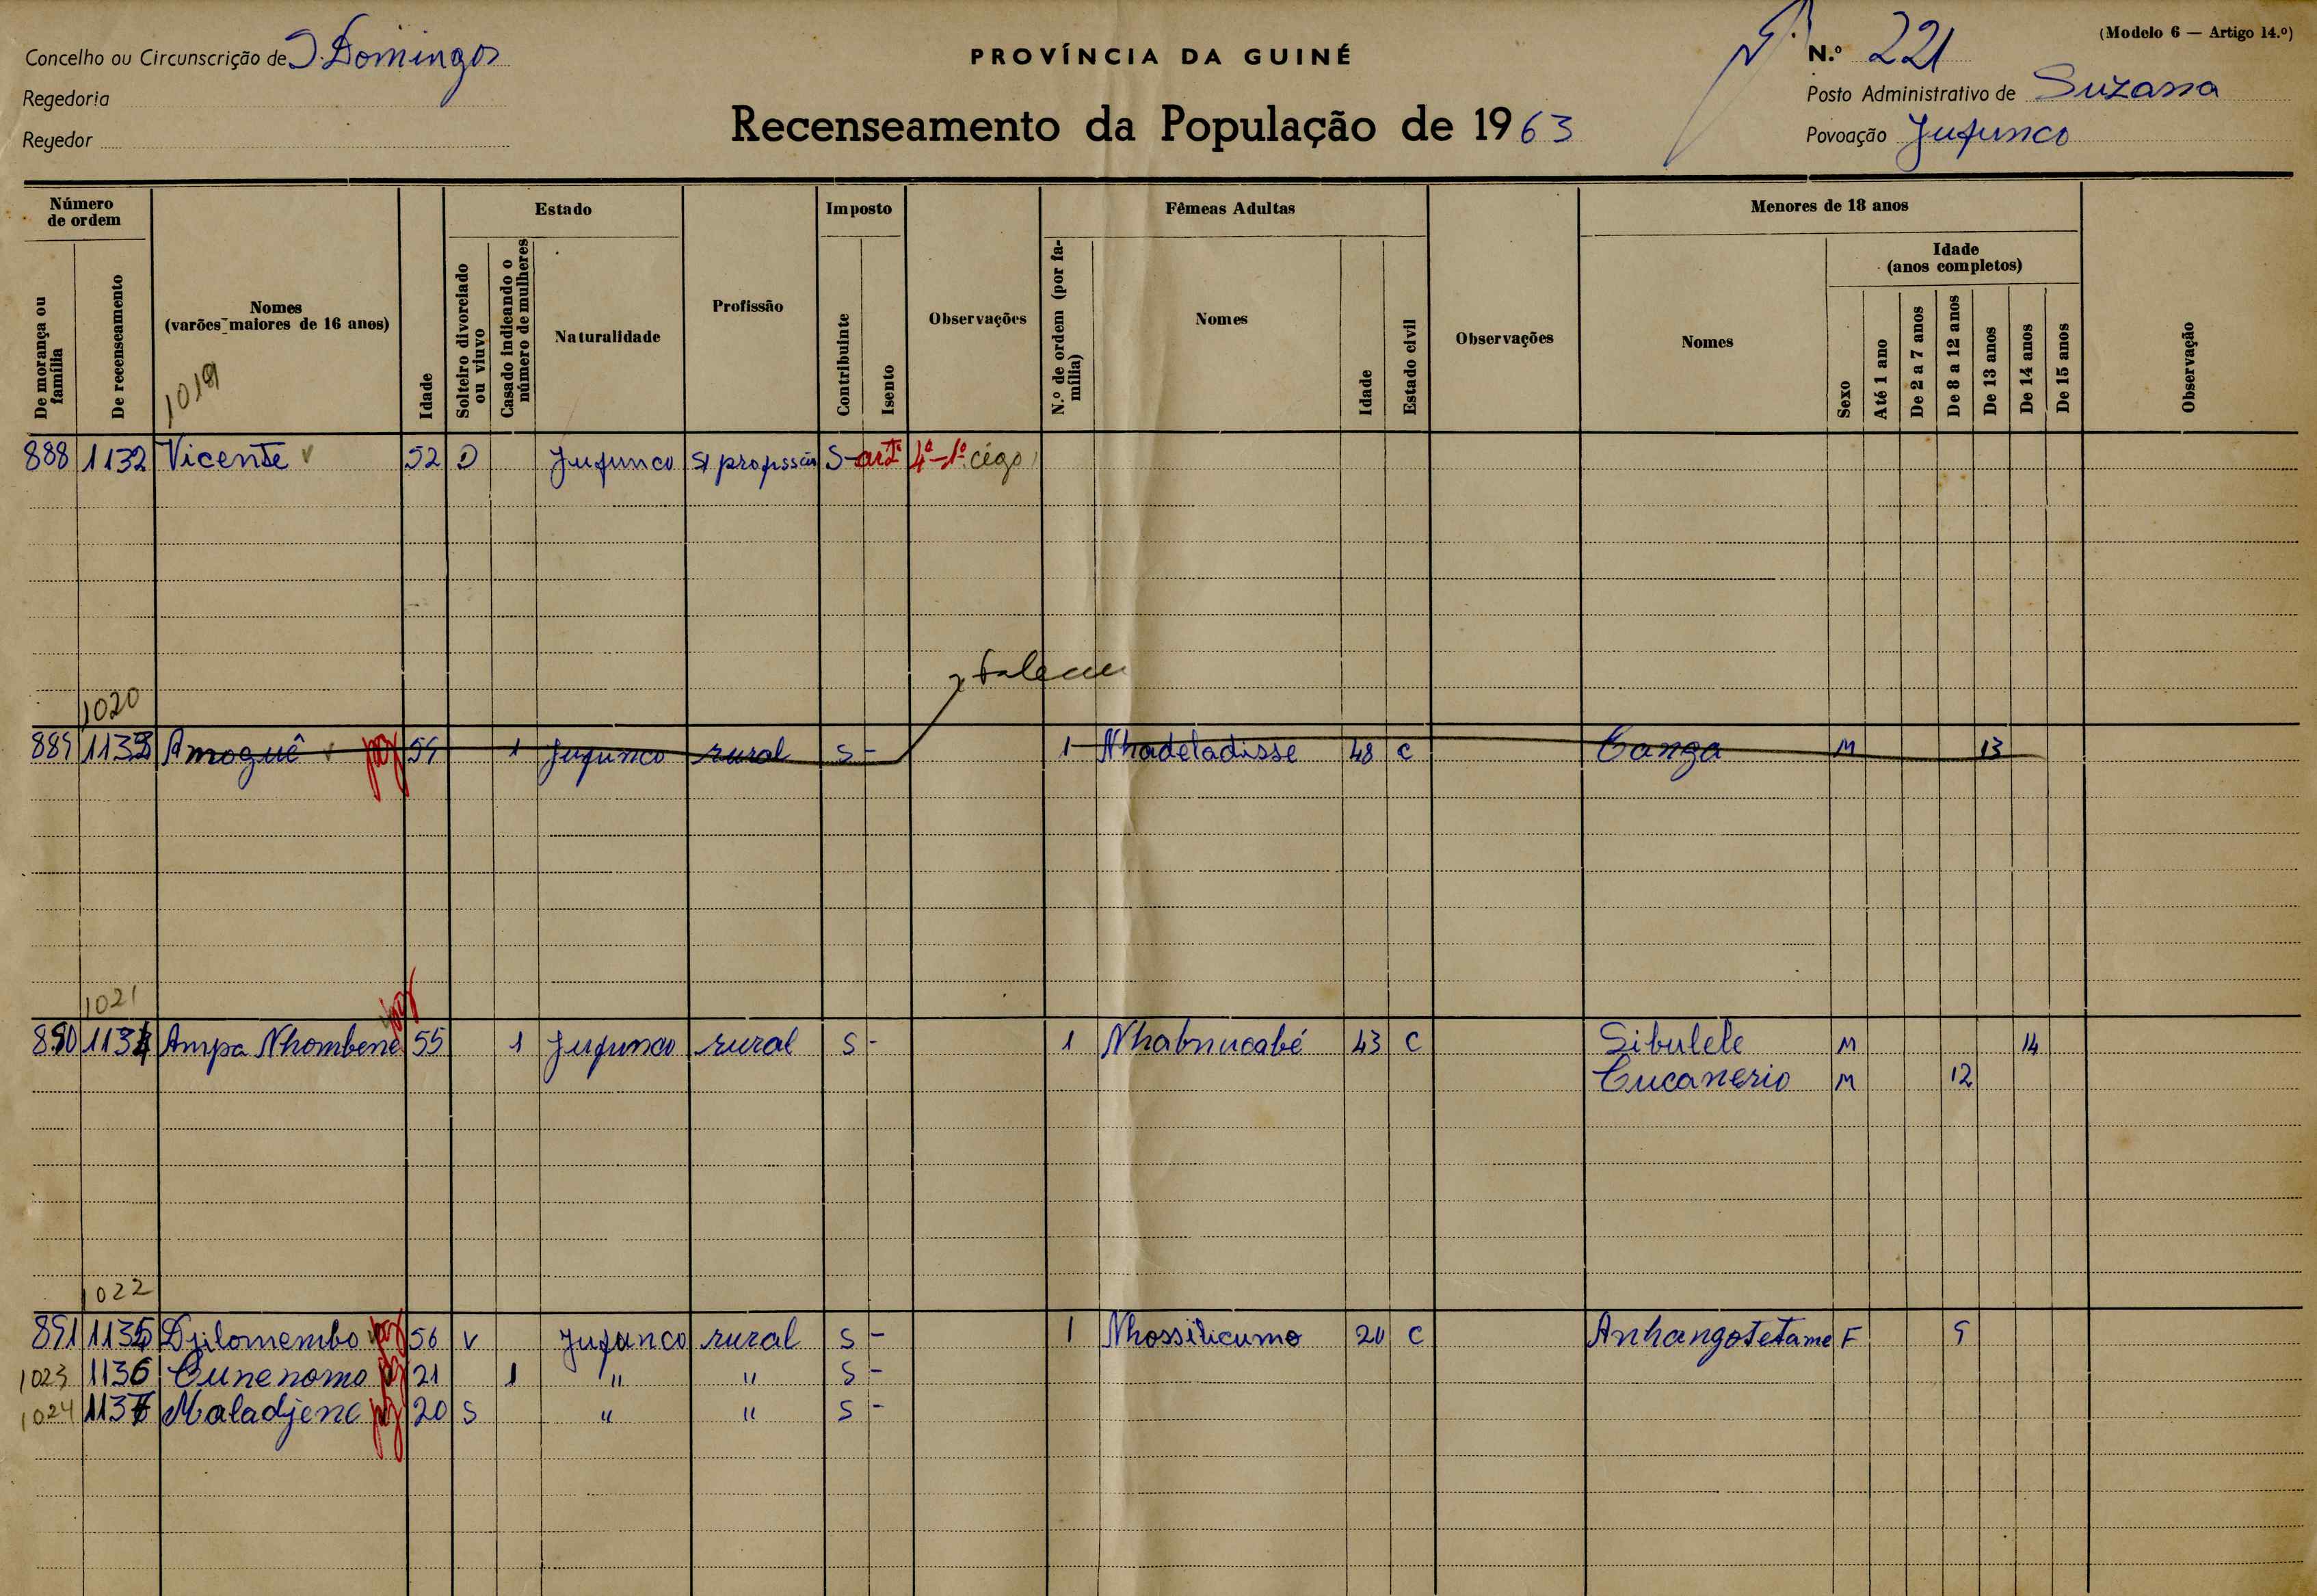 (Modelo 6 — Artigo 14.º)
Concelho ou Circunscrição de S. Domingos
PROVÍNCIA DA GUINÉ
N.º 221
Regedoria
Posto Administrativo de Suzana
Regedor
Recenseamento da População de 1963
Povoação Jufunco
Número de ordem
Estado
Imposto
Fêmeas Adultas
Menores de 18 anos
De morança ou família
De recenseamento
Nomes (varões maiores de 16 anos)
Idade
Solteiro divorciado ou viuvo
Casado indicando o número de mulheres
Naturalidade
Profissão
Contribuinte
Isento
Observações
N.º de ordem (por família)
Nomes
Idade
Estado civil
Observações
Nomes
Sexo
Idade (anos completos)
Até 1 ano
De 2 a 7 anos
De 8 a 12 anos
De 13 anos
De 14 anos
De 15 anos
Observação
1019
888 1132 Vicente 52 D Jufunco S/ profissão S- artº 4º-1º cégo
faleceu
1020
889 1133 Amoguê pg 54 1 Jufunco rural S - 1 Nhadeladisse 48 C Canga M 13
1021
890 1134 Ampa Nhombene pg 55 1 Jufunco rural S - 1 Nhabnucabé 43 C Sibulele M 14
Cucanerio M 12
1022
891 1135 Djilomembo pg 56 V Jufunco rural S - 1 Nhossilicumo 20 C Anhangotetame F 9
1023 1136 Cunenomo pg 21 1 " " S -
1024 1137 Maladjene pg 20 S " " S -